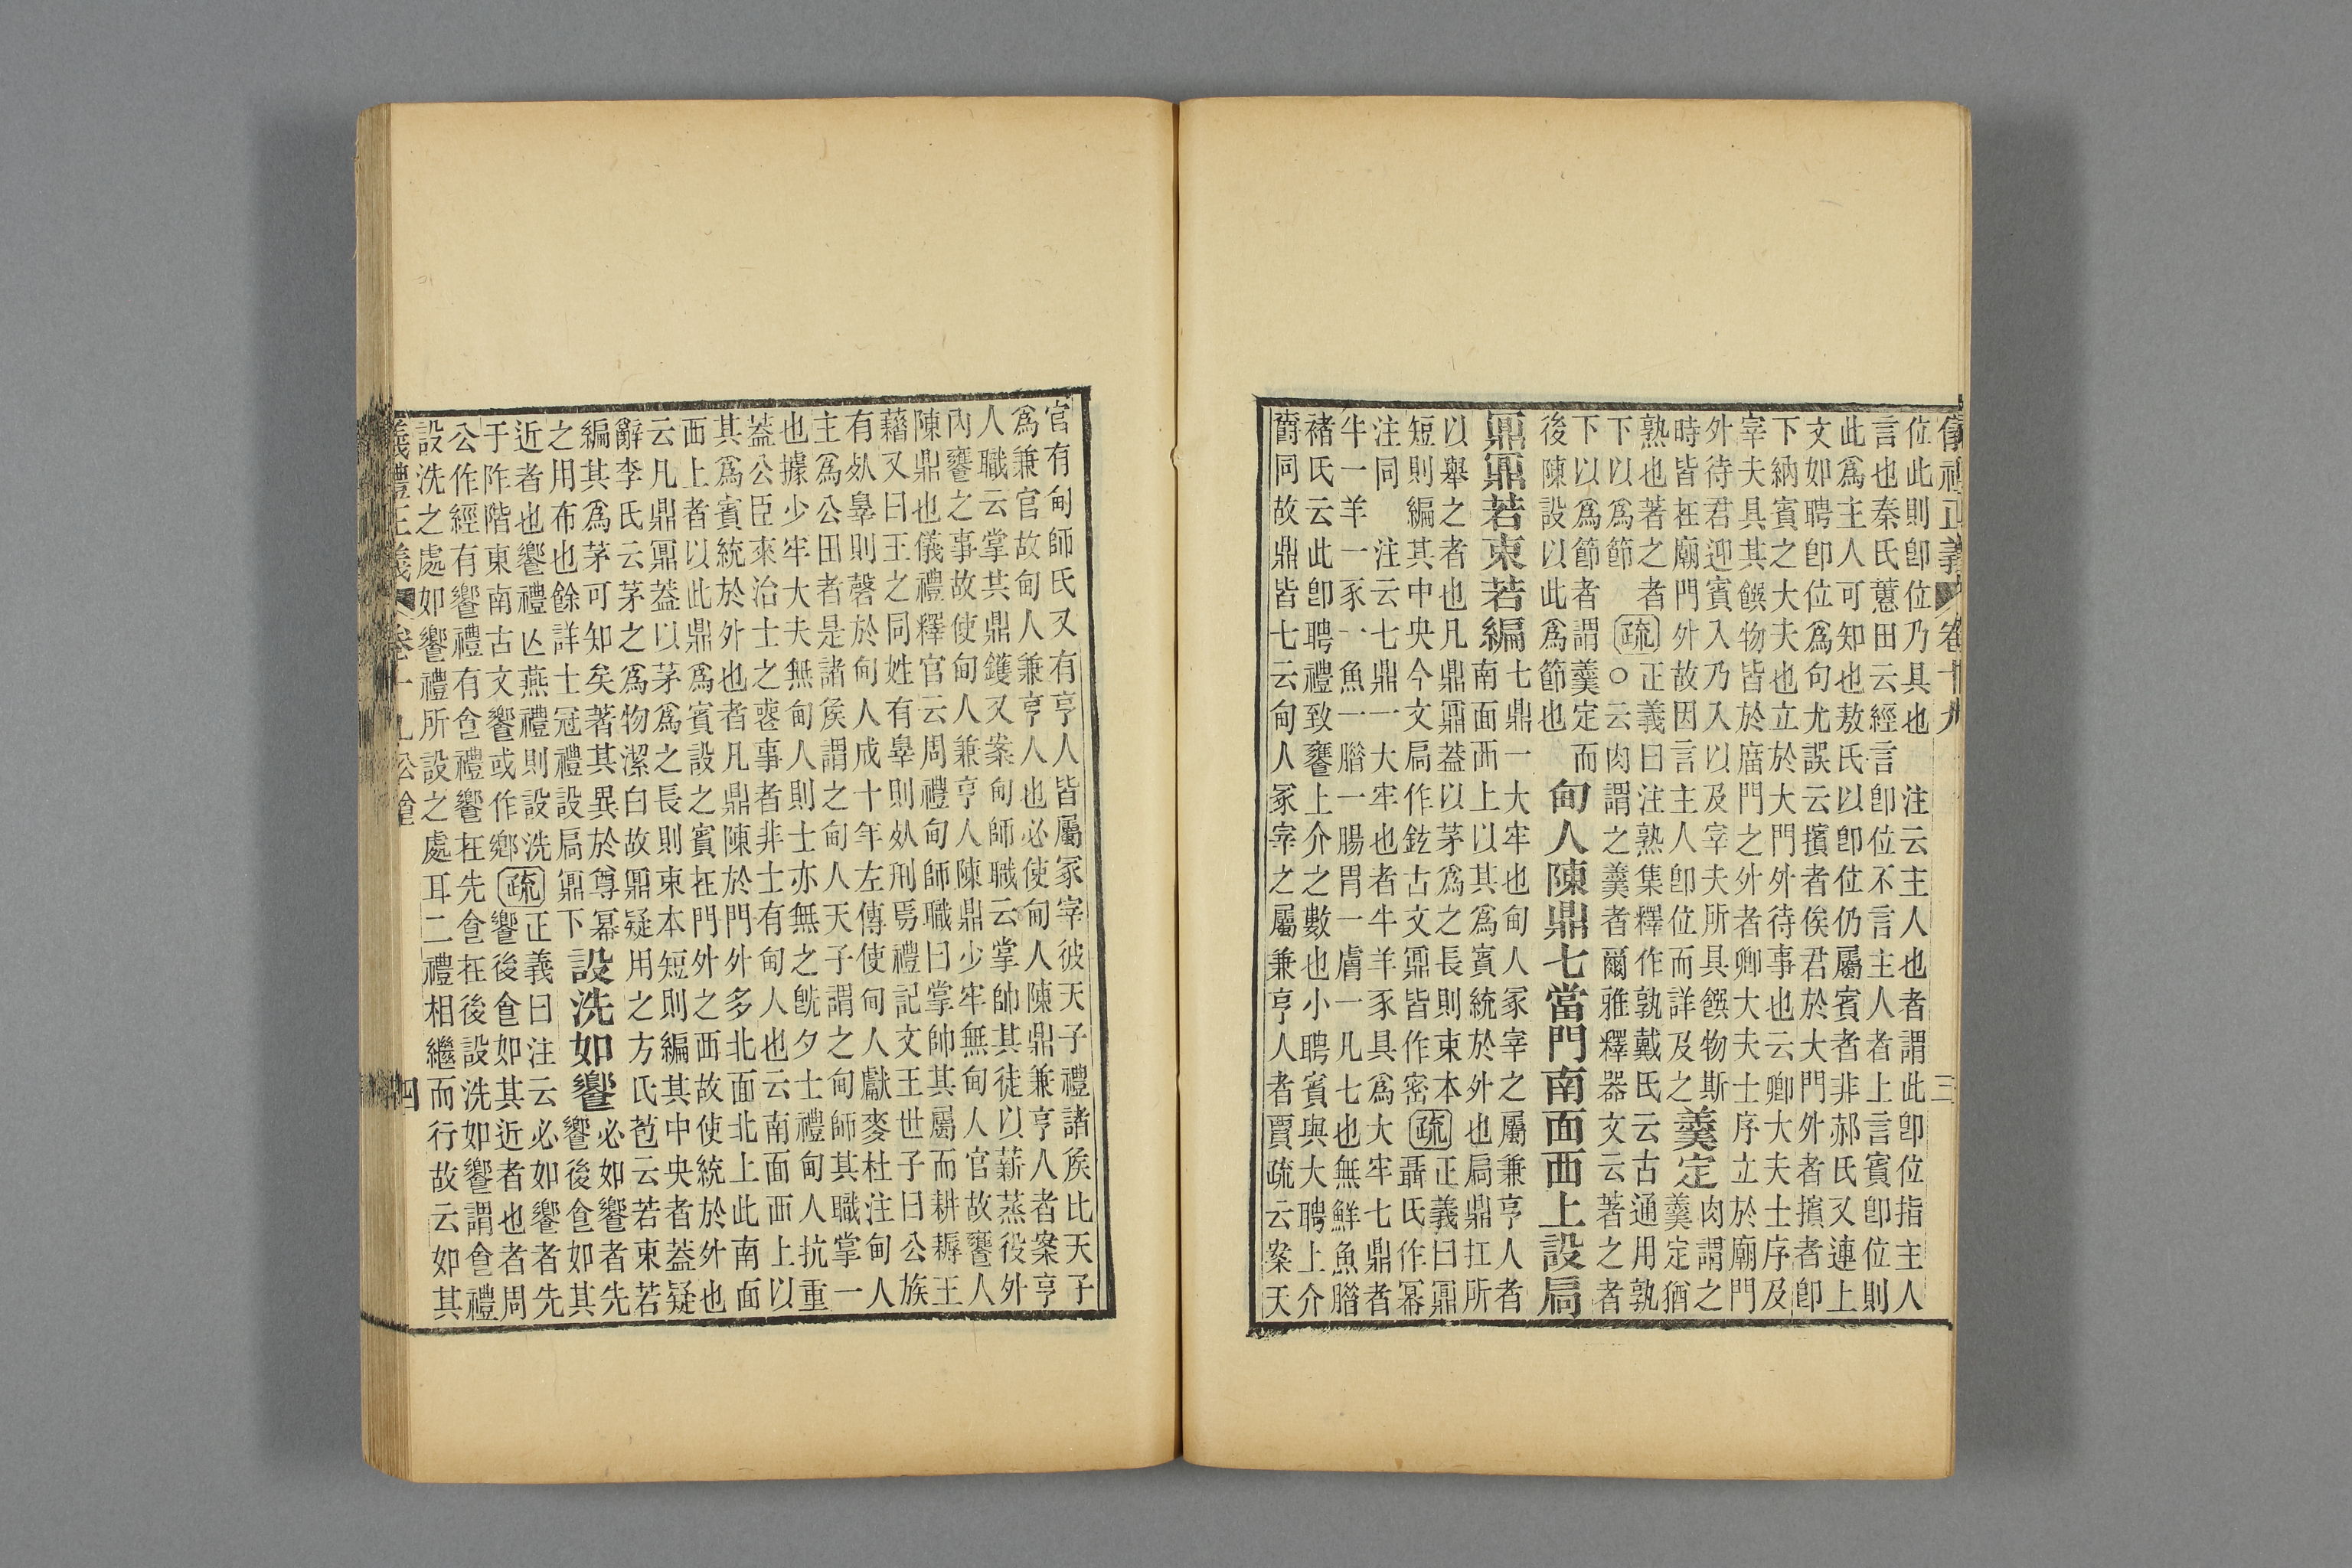 儀禮正義 卷十九 三
位此則卽位乃具也 注云主人也者謂此卽位指主人
言也秦氏蕙田云經言卽位不言主人者上言賓卽位則
此爲主人可知也敖氏以卽位仍屬賓者非郝氏又連上
文如聘卽位爲句尤誤云擯者俟君於大門外者擯者卽
下納賓之大夫也立於大門外待事也云卿大夫士序及
宰夫具其饌物皆於廟門之外者卿大夫士序立於廟門
外待君迎賓入乃入以及宰夫所具饌物斯
時皆在廟門外故因言主人卽位而詳及之
羹定
肉謂之
羹定猶
熟也著之者
下以爲節
疏
正義曰注熟集釋作孰戴氏云古通用孰
○云肉謂之羹者爾雅釋器文云著之者
下以爲節者謂羹定而
後陳設以此爲節也
甸人陳鼎七當門南面西上設扃
鼏鼏若束若編
七鼎一大牢也甸人冢宰之屬兼亨人者
南面西上以其爲賓統於外也扃鼎扛所
以舉之者也凡鼎鼏蓋以茅爲之長則束本
短則編其中央今文扃作鉉古文鼏皆作密
疏
正義曰鼏
聶氏作冪
注同 注云七鼎一大牢也者牛羊豕具爲大牢七鼎者
牛一羊一豕一魚一腊一腸胃一膚一凡七也無鮮魚腊
褚氏云此卽聘禮致饔上介之數也小聘賓與大聘上介
爵同故鼎皆七云甸人冢宰之屬兼亨人者賈疏云案天
官有甸師氏又有亨人皆屬冢宰彼天子禮諸侯比天子
爲兼官故甸人兼亨人也必使甸人陳鼎兼亨人者案亨
人職云掌共鼎鑊又案甸師職云掌帥其徒以薪蒸役外
內饔之事故使甸人兼亨人陳鼎少牢無甸人官故饔人
陳鼎也儀禮釋官云周禮甸師職曰掌帥其屬而耕耨王
藉又曰王之同姓有辠則死刑焉禮記文王世子曰公族
有死辠則磬於甸人成十年左傳使甸人獻麥杜注甸人
主爲公田者是諸侯謂之甸人天子謂之甸師其職掌一
也據少牢大夫無甸人則士亦無之旣夕士禮甸人抗重
蓋公臣來治士之喪事者非士有甸人也云南面西上以
其爲賓統於外也者凡鼎陳於門外多北面北上此南面
西上者以此鼎爲賓設之賓在門外之西故使統於外也
云凡鼎鼏蓋以茅爲之長則束本短則編其中央者蓋疑
辭李氏云茅之爲物潔白故鼏疑用之方氏苞云若束若
編其爲茅可知矣著其異於尊冪
之用布也餘詳士冠禮設扃鼏下
設洗如饗
必如饗者先
饗後食如其
近者也饗禮亡燕禮則設洗
于阼階東南古文饗或作鄉
疏
正義曰注云必如饗者先
饗後食如其近者也者周
公作經有饗禮有食禮饗在先食在後設洗如饗謂食禮
設洗之處如饗禮所設之處耳二禮相繼而行故云如其
儀禮正義 卷十九公食 四